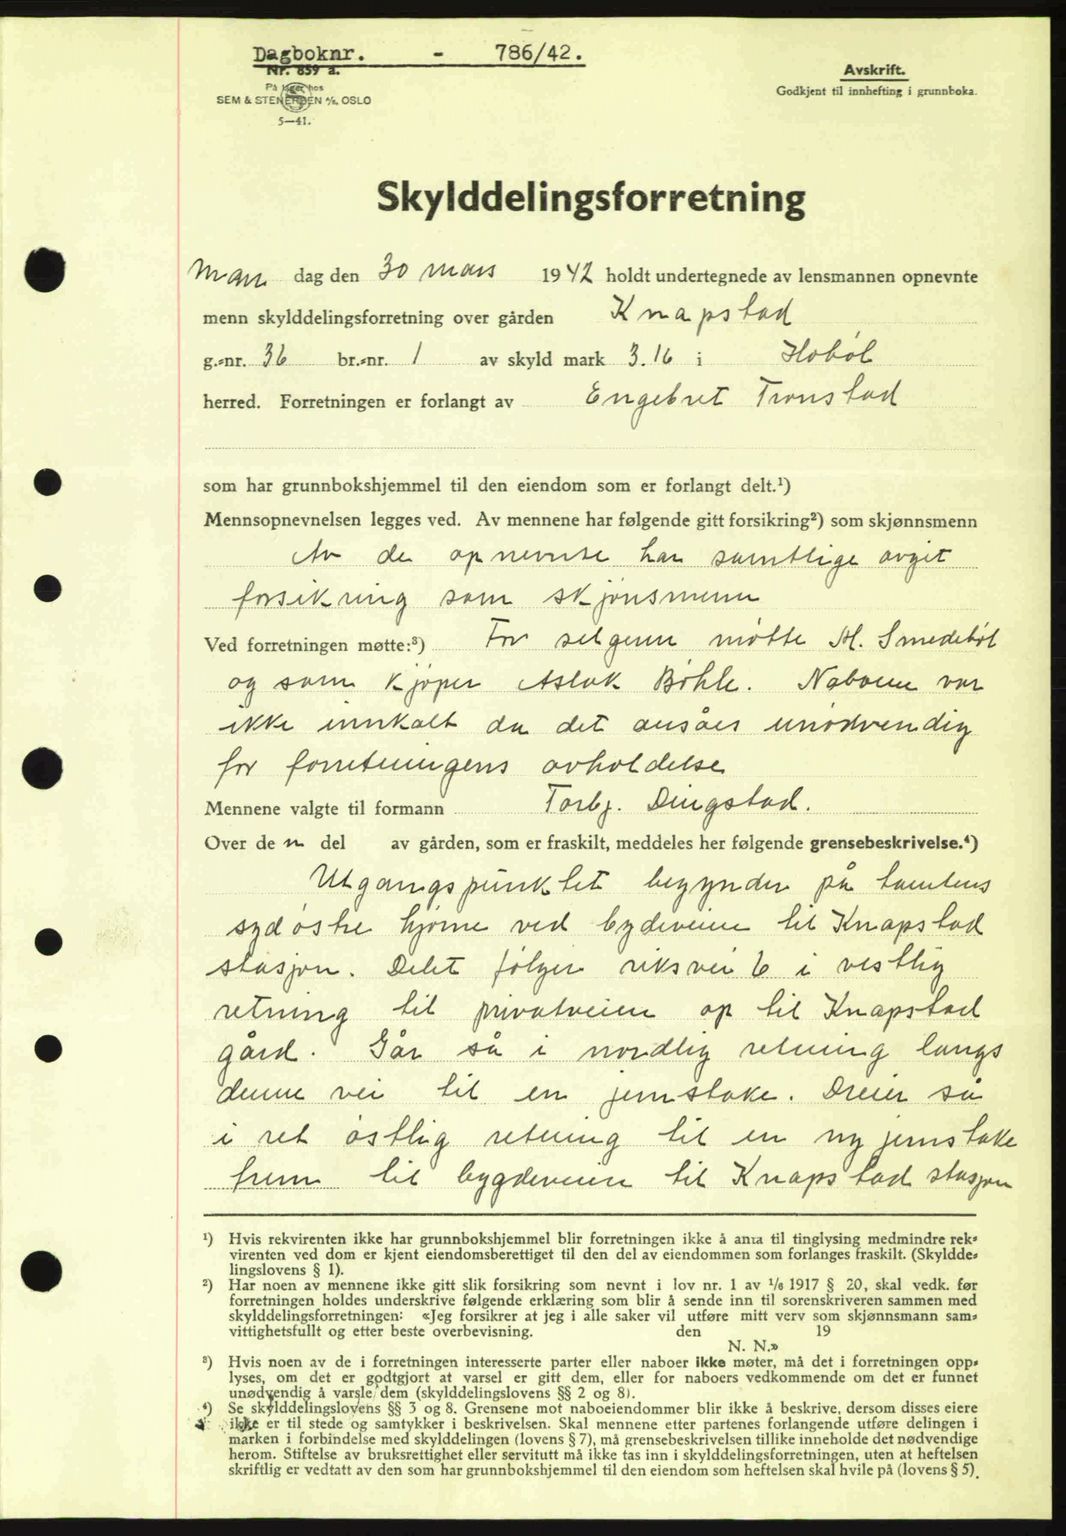 Dagboknr. - 786/42.
Nr. 859 a.
På lager hos
SEM & STENERSEN A/S, OSLO
5—41.
Avskrift.
Godkjent til innhefting i grunnboka.
Skylddelingsforretning
Man dag den 30 mars 1942 holdt undertegnede av lensmannen opnevnte
menn skylddelingsforretning over gården Knapstad
g.-nr. 36 br.-nr. 1 av skyld mark 3.16 i Hobøl
herred. Forretningen er forlangt av Engebret Tronstad
som har grunnbokshjemmel til den eiendom som er forlangt delt.¹)
Mennsopnevnelsen legges ved. Av mennene har følgende gitt forsikring²) som skjønnsmenn
Av de opnevnte har samtlige avgit
forsikring som skjønsmenn
Ved forretningen møtte:³) For selgeren møtte H. Smedebøl
og som kjøper Aslak Bøhle. Naboene var
ikke innkalt da det ansåes unødvendig
for forretningens avholdelse
Mennene valgte til formann Torbj. Dingstad.
Over de n del av gården, som er fraskilt, meddeles her følgende grensebeskrivelse.⁴)
Utgangspunktet begynder på tomtens
sydøstre hjørne ved bydeveien til Knapstad
stasjon. Delet følger riksvei 6 i vestlig
retning til privatveien op til Knapstad
gård. Går så i nordlig retning langs
denne vei til en jernstake. Dreier så
i ret østlig retning til en ny jernstake
frem til bygdeveien til Knapstad stasjon
¹) Hvis rekvirenten ikke har grunnbokshjemmel blir forretningen ikke å anta til tinglysing medmindre rek-
virenten ved dom er kjent eiendomsberettiget til den del av eiendommen som forlanges fraskilt. (Skyldde-
lingslovens § 1).
²) Har noen av mennene ikke gitt slik forsikring som nevnt i lov nr. 1 av 1/6 1917 § 20, skal vedk. før
forretningen holdes underskrive følgende erklæring som blir å sende inn til sorenskriveren sammen med
skylddelingsforretningen: «Jeg forsikrer at jeg i alle saker vil utføre mitt verv som skjønnsmann sam-
vittighetsfullt og etter beste overbevisning. den 19
N. N.»
³) Hvis noen av de i forretningen interesserte parter eller naboer ikke møter, må det i forretningen opp-
lyses, om det er godtgjort at varsel er gitt dem, eller for naboers vedkommende om det er funnet
unødvendig å varsle dem (skylddelingslovens §§ 2 og 8).
⁴) Se skylddelingslovens §§ 3 og 8. Grensene mot naboeiendommer blir ikke å beskrive, dersom disses eiere
ikke er til stede og samtykker i beskrivelsen. Skal mennene etter partenes forlangende utføre delingen i
marken i forbindelse med skylddelingen (lovens § 7), må grensebeskrivelsen tillike inneholde det nødvendige
herom. Stiftelse av bruksrettighet eller servitutt må ikke tas inn i skylddelingsforretningen, uten at heftelsen
skriftlig er vedtatt av den som har grunnbokshjemmel til den eiendom som heftelsen skal hvile på (lovens § 5).